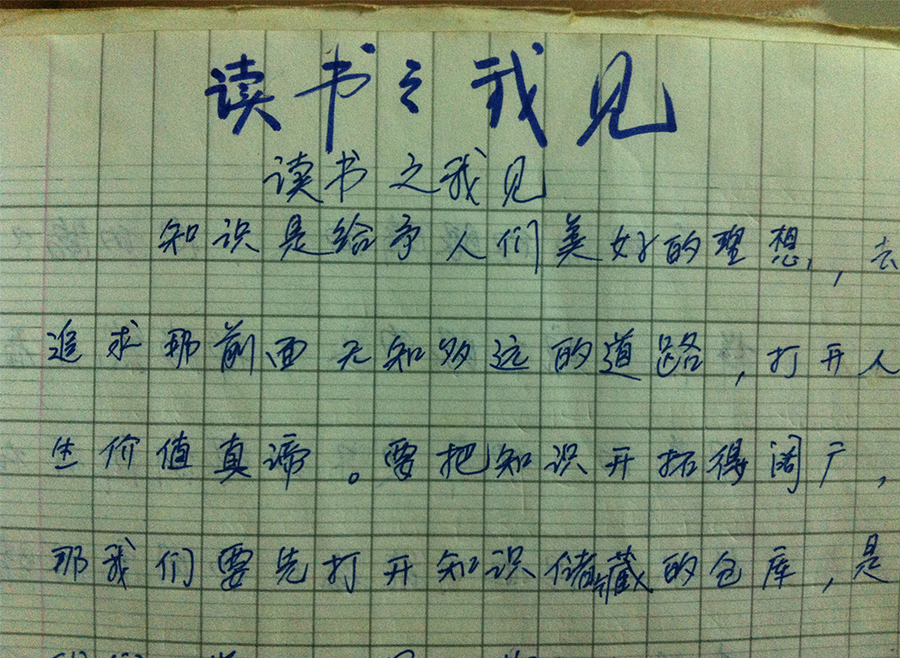 读书之我见
读书之我见
知识是给予人们美好的理想，去
追求那前面无知多远的道路，打开人
生价值真谛。要把知识开拓得阔广，
那我们要先打开知识储藏的仓库，是